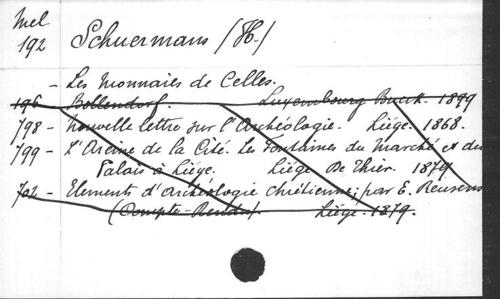 Mel
192 Schuermans (H.)
- Les Monnaies de Celles.
196 - Bollendorf. Luxembourg Buck. 1899
798 - Nouvelle lettre sur l'Archéologie. Liége. 1868.
799 - L'Areine de la Cité. Les Fontaines du Marché et du
Palais à Liége. Liége De Thier. 1879
702 - Elements d'archéologie chrétienne; par E. Reusens
(Compte-Rendu). Liége. 1879.